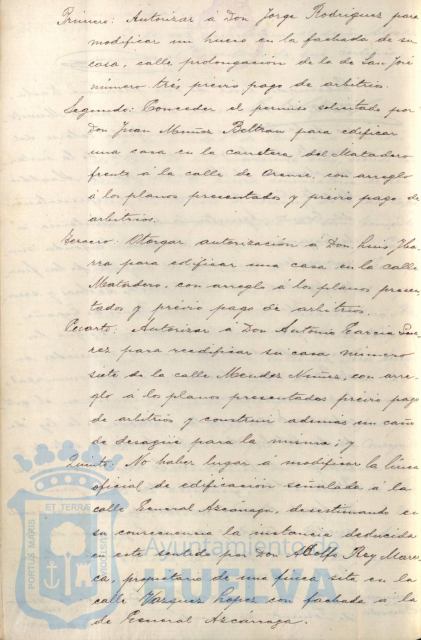 Primero: Autorizar á Don Jorge Rodriguez para
modificar un hueco en la fachada de su
casa, calle prolongación de la de San José
número tres previo pago de arbitrios.
Segundo: Conceder el permiso solicitado por
Don Juan Muñoz Beltran para edificar
una casa en la carretera del Matadero
frente á la calle de Orense, con arreglo
á los planos presentados y previo pago de
arbitrios.
Tercero: Otorgar autorización á Don Luis Iba
rra para edificar una casa en la calle
Matadero, con arreglo á los planos presen
tados y previo pago de arbitrios.
Cuarto: Autorizar á Don Antonio Garcia
rez, para reedificar su casa número
siete de la calle Mendez Nuñez, con arre-
glo á los planos presentados previo pago
de arbitrios y construir además un caño
de desagüe para la misma; y
Quinto: No haber lugar á modificar la linea
oficial de edificación señalada á la
calle General Azcárraga, desestimando en
su consecuencia la instancia deducida
en este sentido por Don Rey
ca, propietario de una finca sita en la
calle Vazquez Lopez con fachada á la
de General Azcárraga.
PORTUS MARIS
ET TERRÆ
CUSTODIA
Ayuntamiento de
HUELVA